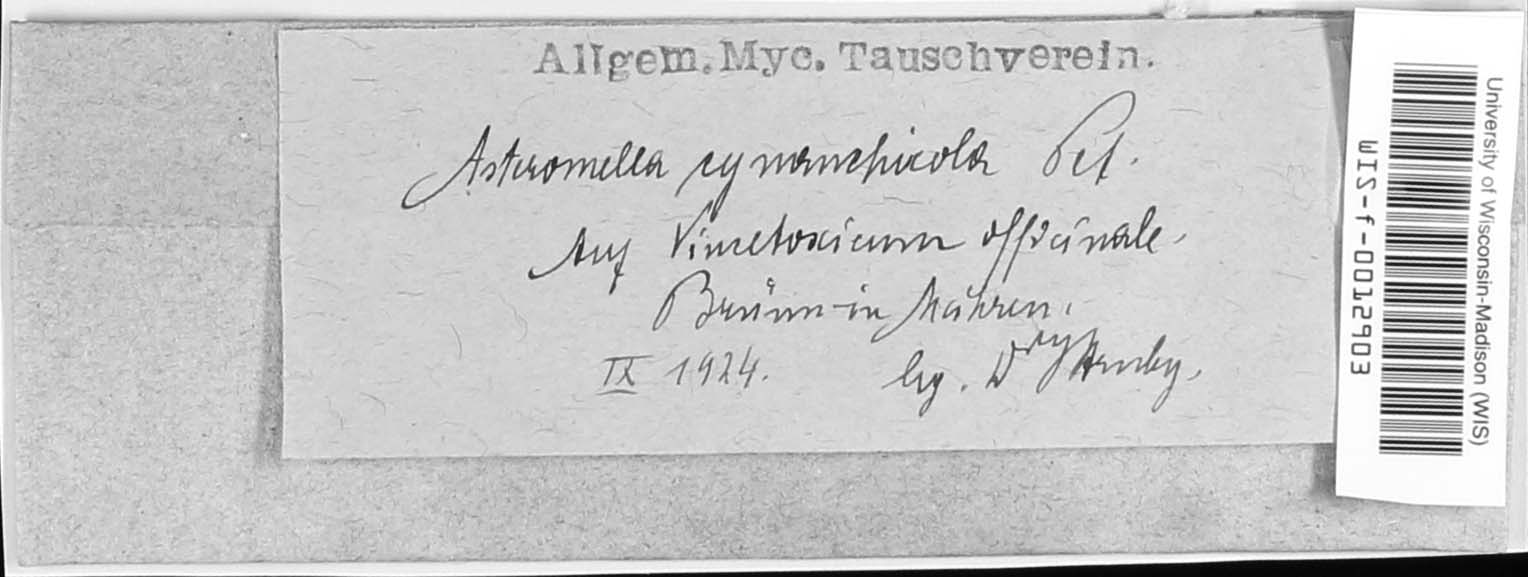 Allgem. Myc. Tauschverein.
Asteromella cynanchicola Pet.
Auf Vincetoxicum officinale.
Brünn in Mähren.
IX 1924. leg. Dr Hruby.
University of Wisconsin-Madison (WIS)
WIS-f-0012903